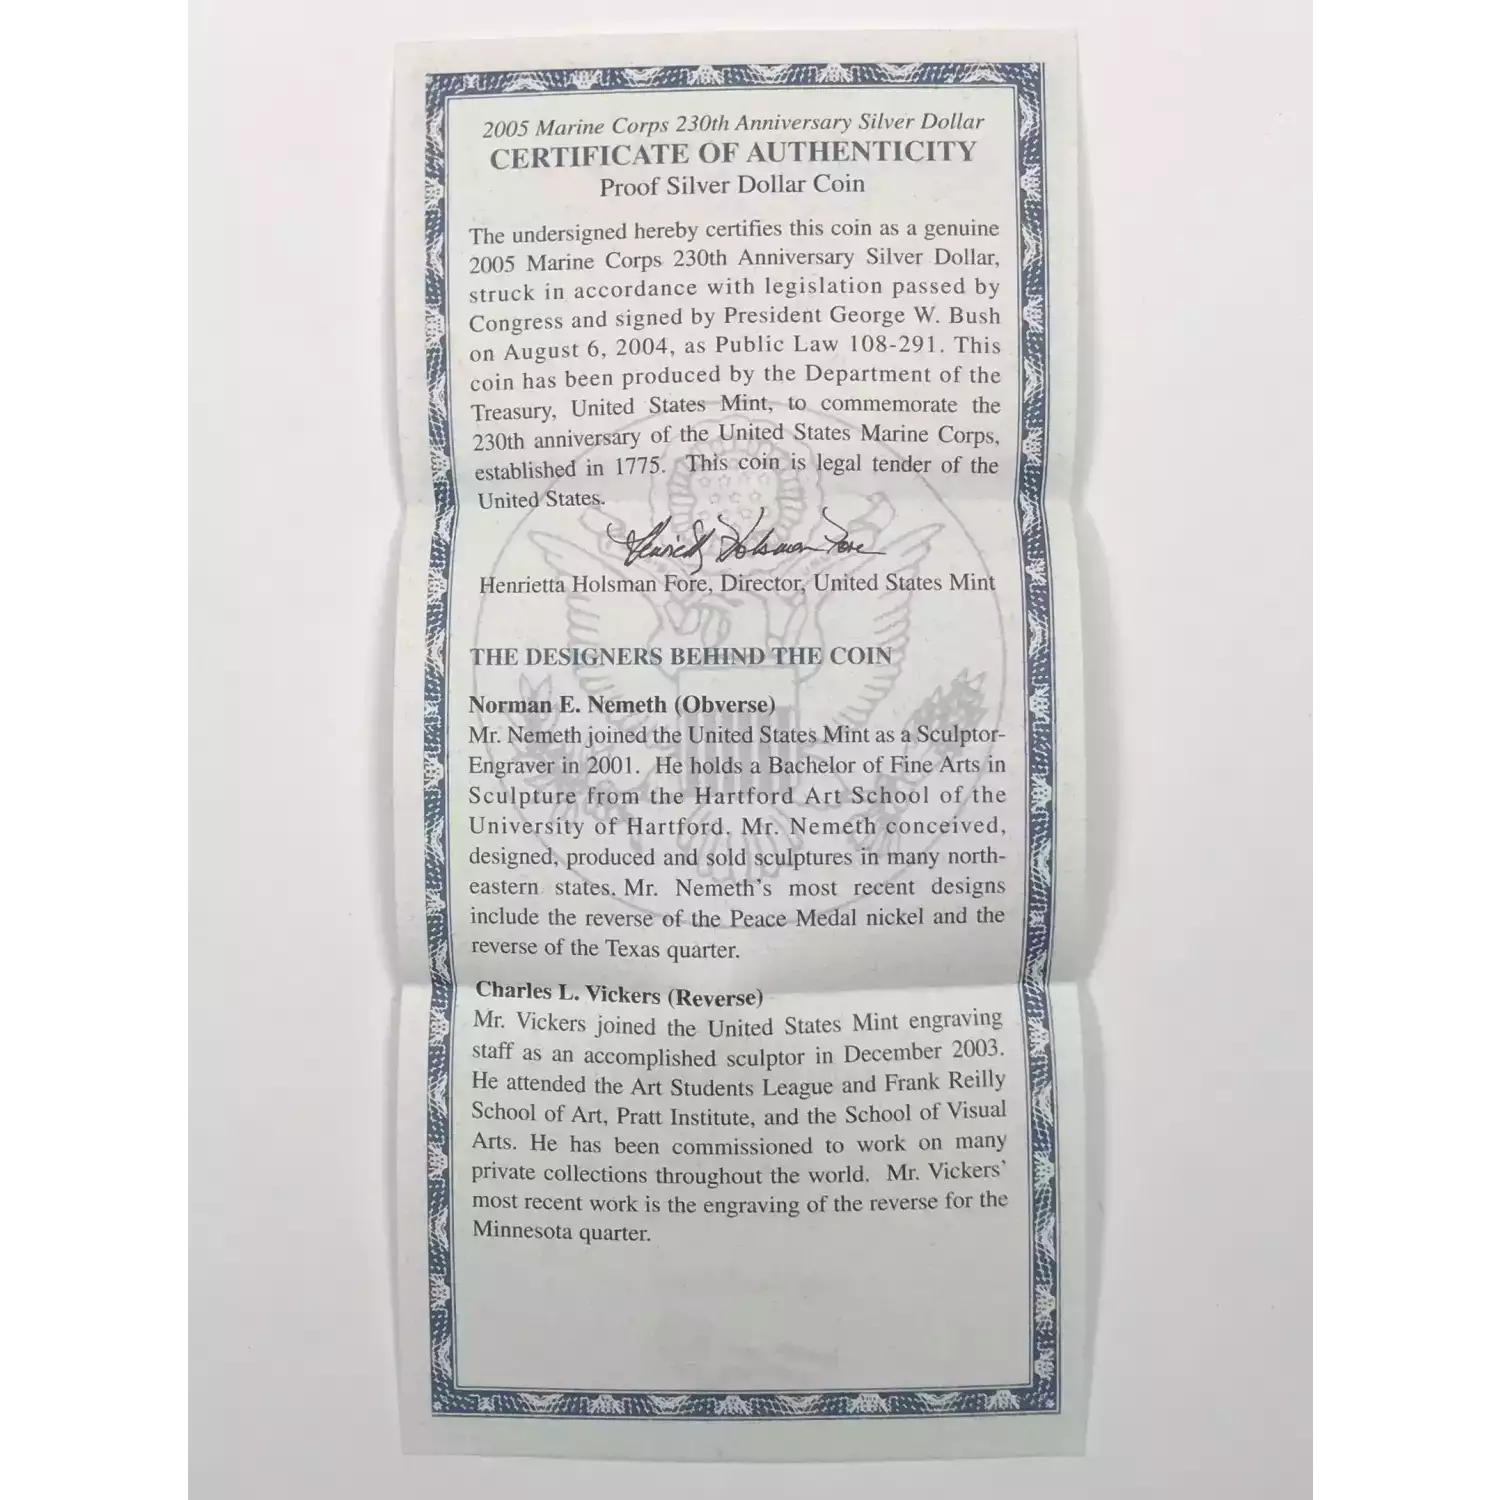 2005 Marine Corps 230th Anniversary Silver Dollar
CERTIFICATE OF AUTHENTICITY
Proof Silver Dollar Coin
The undersigned hereby certifies this coin as a genuine
2005 Marine Corps 230th Anniversary Silver Dollar,
struck in accordance with legislation passed by
Congress and signed by President George W. Bush
on August 6, 2004, as Public Law 108-291. This
coin has been produced by the Department of the
Treasury, United States Mint, to commemorate the
230th anniversary of the United States Marine Corps,
established in 1775. This coin is legal tender of the
United States.
Henrietta Holsman Fore
Henrietta Holsman Fore, Director, United States Mint
THE DESIGNERS BEHIND THE COIN
Norman E. Nemeth (Obverse)
Mr. Nemeth joined the United States Mint as a Sculptor-
Engraver in 2001. He holds a Bachelor of Fine Arts in
Sculpture from the Hartford Art School of the
University of Hartford. Mr. Nemeth conceived,
designed, produced and sold sculptures in many north-
eastern states. Mr. Nemeth's most recent designs
include the reverse of the Peace Medal nickel and the
reverse of the Texas quarter.
Charles L. Vickers (Reverse)
Mr. Vickers joined the United States Mint engraving
staff as an accomplished sculptor in December 2003.
He attended the Art Students League and Frank Reilly
School of Art, Pratt Institute, and the School of Visual
Arts. He has been commissioned to work on many
private collections throughout the world. Mr. Vickers'
most recent work is the engraving of the reverse for the
Minnesota quarter.